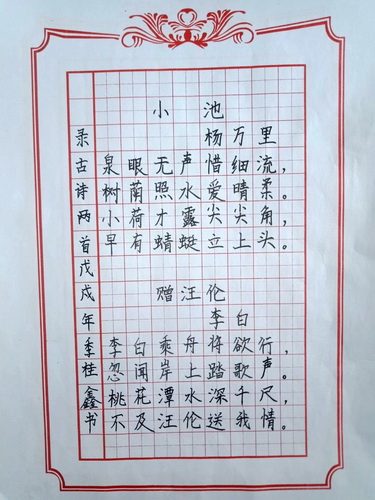 小池
杨万里
泉眼无声惜细流，
树荫照水爱晴柔。
小荷才露尖尖角，
早有蜻蜓立上头。
赠汪伦
李白
李白乘舟将欲行，
忽闻岸上踏歌声。
桃花潭水深千尺，
不及汪伦送我情。
录古诗两首戊戌年季桂鑫书